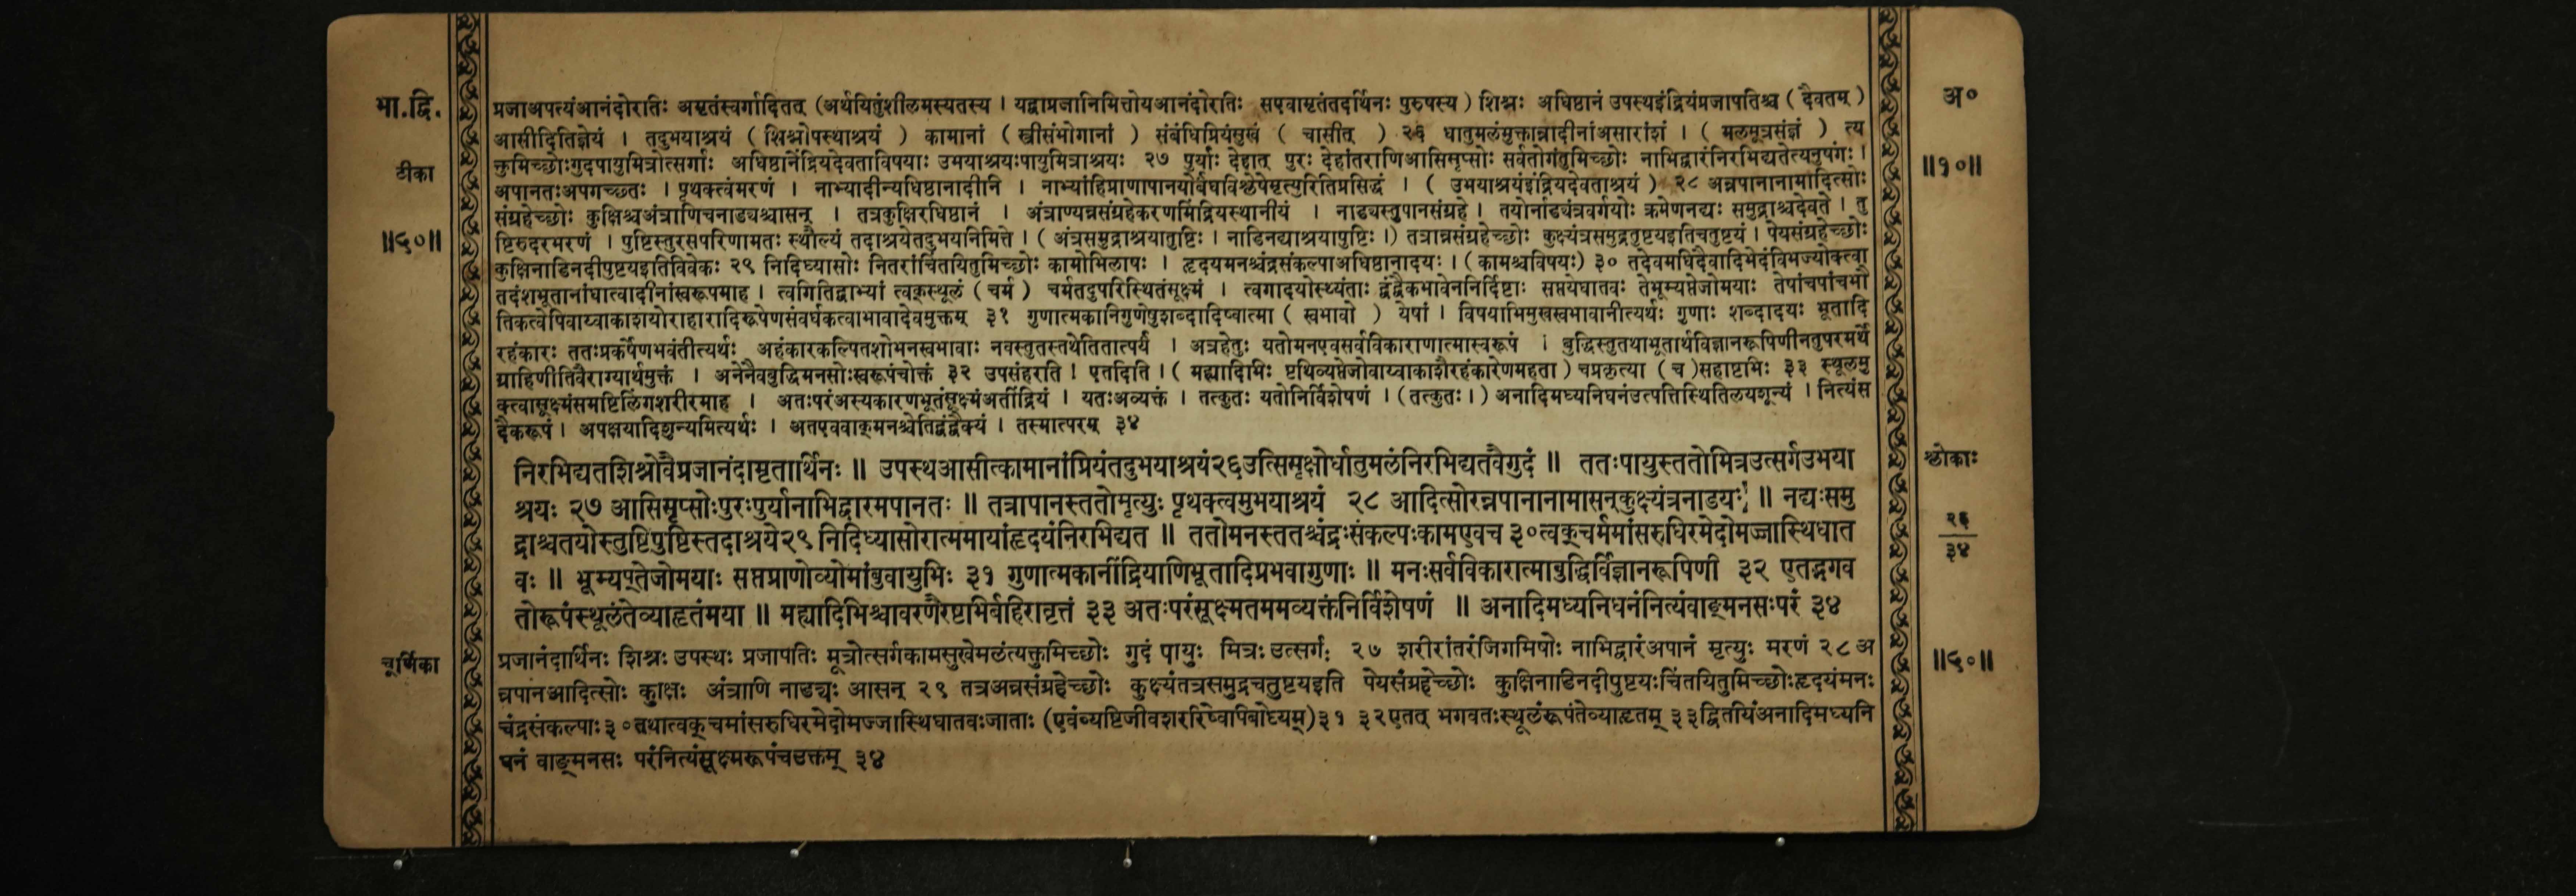 भा.द्वि.
टीका
॥५०॥
प्रजाअपत्यंआनंदोरतिः अमृतंस्वर्गादितत् (अर्थयितुंशीलमस्यतस्य । यद्वाप्रजानिमित्तोयआनंदोरतिः सएवामृतंतदर्थिनः पुरुषस्य) शिश्नः अधिष्ठानं उपस्थइंद्रियंप्रजापतिश्च (दैवतम्)
आसीदितिज्ञेयं । तदुभयाश्रयं (शिश्नोपस्थाश्रयं) कामानां (स्त्रीसंभोगानां) संबंधिप्रियंसुखं (चासीत्) २६ धातुमलंभुक्तान्नादीनांअसारांशं । (मलमूत्रसंज्ञं) त्य
क्तुमिच्छोःगुदपायुमित्रोत्सर्गाः अधिष्ठानेंद्रियदेवताविषयाः उभयाश्रयःपायुमित्राश्रयः २७ पुर्याः देहात् पुरः देहांतराणिआसिसृप्सोः सर्वतोगंतुमिच्छोः नाभिद्वारंनिरभिद्यतेत्यनुषंगः ।
अपानतःअपगच्छतः । पृथक्त्वंमरणं । नाभ्यादीन्यधिष्ठानादीनि । नाभ्यांहिप्राणापानयोर्बंधविश्लेषेमृत्युरितिप्रसिद्धं । (उभयाश्रयंइंद्रियदेवताश्रयं) २८ अन्नपानानामादित्सोः
संग्रहेच्छोः कुक्षिश्चअंत्राणिचनाड्यश्चासन् । तत्रकुक्षिरधिष्ठानं । अंत्राण्यन्नसंग्रहेकरणमिंद्रियस्थानीयं । नाड्यस्तुपानसंग्रहे । तयोर्नाड्यंत्रवर्गयोः क्रमेणनद्यः समुद्राश्चदेवते । तु
ष्टिरुदरभरणं । पुष्टिस्तुरसपरिणामतः स्थौल्यं तदाश्रयेतदुभयनिमित्ते । (अंत्रसमुद्राश्रयातुष्टिः । नाडिनद्याश्रयापुष्टिः ।) तत्रान्नसंग्रहेच्छोः कुक्ष्यंत्रसमुद्रतुष्टयइतिचतुष्टयं । पेयसंग्रहेच्छोः
कुक्षिनाडिनदीपुष्टयइतिविवेकः २९ निदिध्यासोः नितरांचिंतयितुमिच्छोः कामोभिलाषः । हृदयमनश्चंद्रसंकल्पाअधिष्ठानादयः । (कामश्चविषयः) ३० तदेवमधिदैवादिभेदंविभज्योक्त्वा
तदंशभूतानांधात्वादीनांस्वरूपमाह । त्वगितिद्वाभ्यां त्वक्स्थूलं (चर्म) चर्मतदुपरिस्थितंसूक्ष्मं । त्वगादयोस्थ्यंताः द्वंद्वैकभावेननिर्दिष्टाः सप्तयधातवः तेभूम्यप्तेजोमयाः तेषांचपांचभौ
तिकत्वेपिवाय्वाकाशयोराहारादिरूपेणसंवर्धकत्वाभावादेवमुक्तम् ३१ गुणात्मकानिगुणेषुशब्दादिष्वात्मा (स्वभावो) येषां । विषयाभिमुखस्वभावानीत्यर्थः गुणाः शब्दादयः भूतादि
रहंकारः ततःप्रकर्षेणभवंतीत्यर्थः अहंकारकल्पितशोभनस्वभावाः नवस्तुतस्तथेतितात्पर्यं । अत्रहेतुः यतोमनएवसर्वविकाराणात्मास्वरूपं । बुद्धिस्तुतथाभूतार्थविज्ञानरूपिणीनतुपरमर्थे
ग्राहिणीतिवैराग्यार्थमुक्तं । अनेनैवबुद्धिमनसोःस्वरूपंचोक्तं ३२ उपसंहरति । एतदिति । (मह्यादिभिः पृथिव्यप्तेजोवाय्वाकाशैरहंकारेणमहता) चप्रकृत्या (च) सहाष्टभिः ३३ स्थूलमु
क्त्वासूक्ष्मंसमष्टिलिंगशरीरमाह । अतःपरंअस्यकारणभूतंसूक्ष्मंअतींद्रियं । यतःअव्यक्तं । तत्कुतः यतोनिर्विशेषणं । (तत्कुतः ।) अनादिमध्यनिधनंउत्पत्तिस्थितिलयशून्यं । नित्यंस
दैकरूपं । अपक्षयादिशुन्यमित्यर्थः । अतएववाक्मनश्चेतिद्वंद्वैक्यं । तस्मात्परम् ३४
निरभिद्यतशिश्नोवैप्रजानंदामृतार्थिनः ॥ उपस्थआसीत्कामानांप्रियंतदुभयाश्रयं२६उत्सिसृक्षोर्धातुमलंनिरभिद्यतवैगुदं ॥ ततःपायुस्ततोमित्रउत्सर्गउभया
श्रयः २७ आसिसृप्सोःपुरःपुर्यानाभिद्वारमपानतः ॥ तत्रापानस्ततोमृत्युः पृथक्त्वमुभयाश्रयं २८ आदित्सोरन्नपानानामासन्कुक्ष्यंत्रनाडयः ॥ नद्यःसमु
द्राश्चतयोस्तुष्टिपुष्टिस्तदाश्रये२९ निदिध्यासोरात्ममायांहृदयंनिरभिद्यत ॥ ततोमनस्ततश्चंद्रःसंकल्पःकामएवच ३०त्वक्चर्ममांसरुधिरमेदोमज्जास्थिधात
वः ॥ भूम्यप्तेजोमयाः सप्तप्राणोव्योमांबुवायुभिः ३१ गुणात्मकानींद्रियाणिभूतादिप्रभवागुणाः ॥ मनःसर्वविकारात्माबुद्धिर्विज्ञानरूपिणी ३२ एतद्भगव
तोरूपंस्थूलंतेव्याहृतंमया ॥ मह्यादिभिश्चावरणैरष्टाभिर्बहिरावृत्तं ३३ अतःपरंसूक्ष्मतममव्यक्तंनिर्विशेषणं ॥ अनादिमध्यनिधनंनित्यंवाङ्मनसःपरं ३४
चूर्णिका
प्रजानंदार्थिनः शिश्नः उपस्थः प्रजापतिः मूत्रोत्सर्गकामसुखेमलंत्यक्तुमिच्छोः गुदं पायुः मित्रः उत्सर्गः २७ शरीरांतरंजिगमिषोः नाभिद्वारंअपानं मृत्युः मरणं २८ अ
न्नपानआदित्सोः कुक्षिः अंत्राणि नाड्यः आसन् २९ तत्रअन्नसंग्रहेच्छोः कुक्ष्यंतत्रसमुद्रचतुष्टयइति पेयसंग्रहेच्छोः कुक्षिनाडिनदीपुष्टयःचिंतयितुमिच्छोःहृदयंमनः
चंद्रसंकल्पाः३०तथात्वक्चमांसरुधिरमेदोमज्जास्थिधातवःजाताः (एवंव्यष्टिजीवशररिष्वापिबोध्यम्)३१ ३२एतत् भगवतःस्थूलंरूपंतेव्याहृतम् ३३द्वितीयंअनादिमध्यनि
धनं वाङ्मनसः परंनित्यंसूक्ष्मरूपंचउक्तम् ३४
अ०
॥१०॥
श्लोकाः
२६
३४
॥५०॥